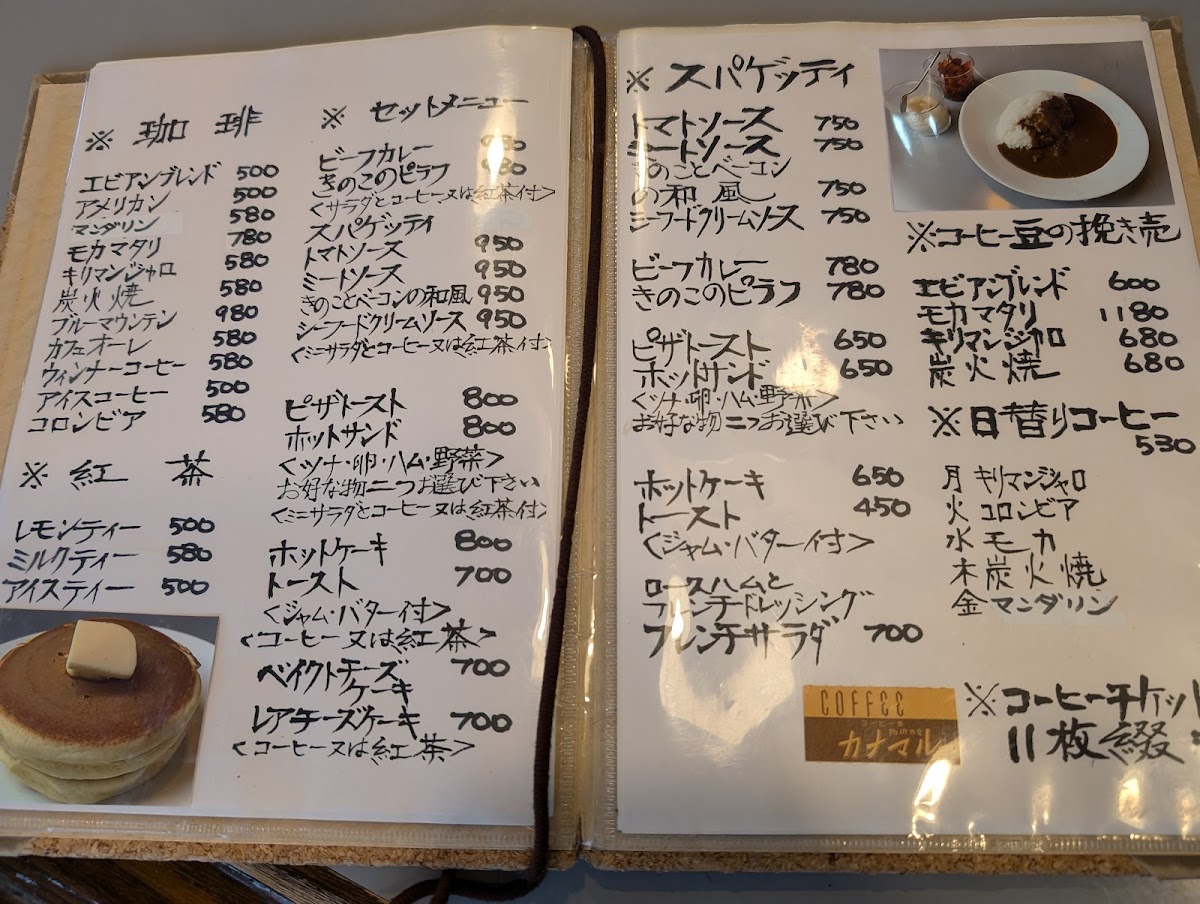 ※ 珈琲
エビアンブレンド 500
アメリカン 500
マンダリン 580
モカマタリ 780
キリマンジャロ 580
炭火焼 580
ブルーマウンテン 980
カフェオーレ 580
ウィンナーコーヒー 580
アイスコーヒー 500
コロンビア 580
※ 紅茶
レモンティー 500
ミルクティー 580
アイスティー 500
※ セットメニュー
ビーフカレー 980
きのこのピラフ 980
<サラダとコーヒー又は紅茶付>
スパゲッティ
トマトソース 950
ミートソース 950
きのことベーコンの和風 950
シーフードクリームソース 950
<ミニサラダとコーヒー又は紅茶付>
ピザトースト 800
ホットサンド 800
<ツナ・卵・ハム・野菜>
お好な物二つお選び下さい
<ミニサラダとコーヒー又は紅茶付>
ホットケーキ 800
トースト 700
<ジャム・バター付>
<コーヒー又は紅茶>
ベイクトチーズ 700
ケーキ
レアチーズケーキ 700
<コーヒー又は紅茶>
※スパゲッティ
トマトソース 750
ミートソース 750
きのことベーコン
の和風 750
シーフードクリームソース 750
ビーフカレー 780
きのこのピラフ 780
ピザトースト 650
ホットサンド 650
<ツナ・卵・ハム・野菜>
お好な物二つお選び下さい
ホットケーキ 650
トースト 450
<ジャム・バター付>
ロースハムと
フレンチドレッシング
フレンチサラダ 700
※コーヒー豆の挽き売
エビアンブレンド 600
モカマタリ 1180
キリマンジャロ 680
炭火焼 680
※日替りコーヒー
530
月 キリマンジャロ
火 コロンビア
水 モカ
木 炭火焼
金 マンダリン
※コーヒーチケット
11枚綴
COFFEE
カナマル